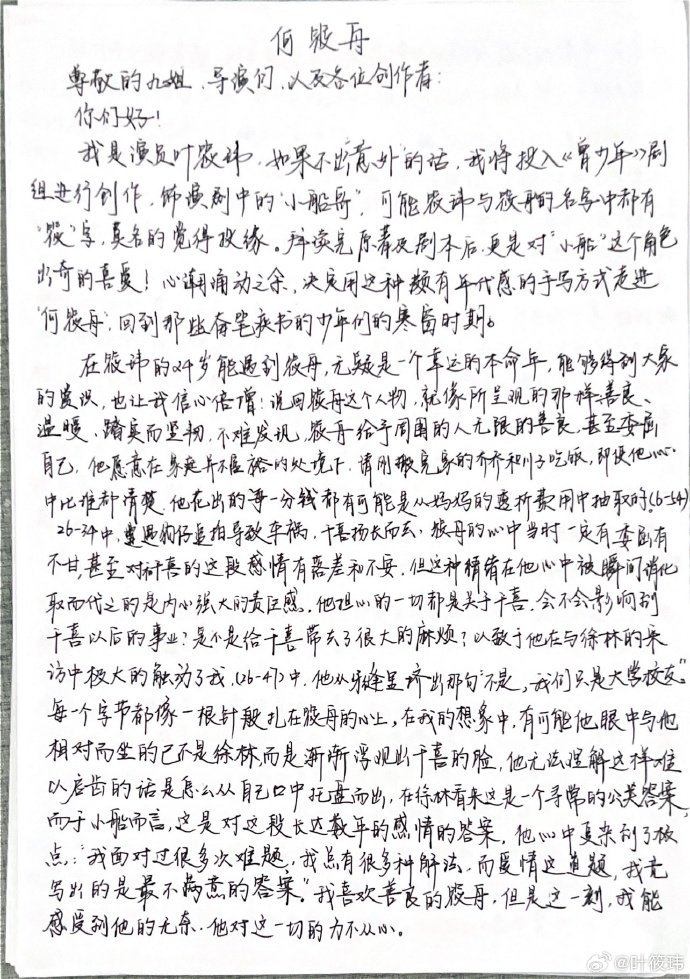 何筱舟
尊敬的九姐、导演们、以及各位创作者:
你们好!
我是演员叶筱玮,如果不出“意外”的话,我将投入《曾少年》剧
组进行创作,饰演剧中的“小船哥”,可能筱玮与筱舟的名字中都有
“筱”字,莫名的觉得投缘。拜读完原著及剧本后,更是对“小船”这个角色
出奇的喜爱!心潮涌动之余,决定用这种颇有年代感的手写方式走进
“何筱舟”,回到那些奋笔疾书的少年们的寒窗时期。
在筱玮的24岁能遇到筱舟,无疑是一个幸运的本命年,能够得到大家
的赏识,也让我信心倍增!说回筱舟这个人物,就像所呈现的那样:善良、
温暖、踏实而坚韧,不难发现,筱舟给予周围的人无限的善良,甚至委屈
自己,他愿意在家庭并不富裕的处境下,请刚搬完家的乔乔和川子吃饭,即使他心
中比谁都清楚,他花出的每一分钱都有可能是从妈妈的透析费用中抽取的。(6-34)
26-34中,遭遇狗仔追拍导致车祸,千喜扬长而去,筱舟的心中当时一定有委屈有
不甘,甚至对千喜的这段感情有落差和不安,但这种情绪在他心中被瞬间消化
取而代之的是内心强大的责任感,他担心的一切都是关于千喜,会不会影响到
千喜以后的事业?是不是给千喜带去了很大的麻烦?以致于他在与徐林的采
访中极大的触动了我,(26-47)中,他从牙缝里挤出那句“不是,我们只是大学校友”
每一个字节都像一根针般扎在筱舟的心上,在我的想象中,有可能他眼中与他
相对而坐的已不是徐林,而是渐渐浮现出千喜的脸,他无法理解这样难
以启齿的话是怎么从自己口中托盘而出,在徐林看来这是一个寻常的公关答案,
而于小船而言,这是对这段长达数年的感情的答案,他心中复杂到了极
点:“我面对过很多次难题,我总有很多种解法,而爱情这道题,我竟
写出的是最不满意的答案”。我喜欢善良的筱舟,但是这一刻,我能
感受到他的无奈,他对这一切的力不从心。
@叶筱玮